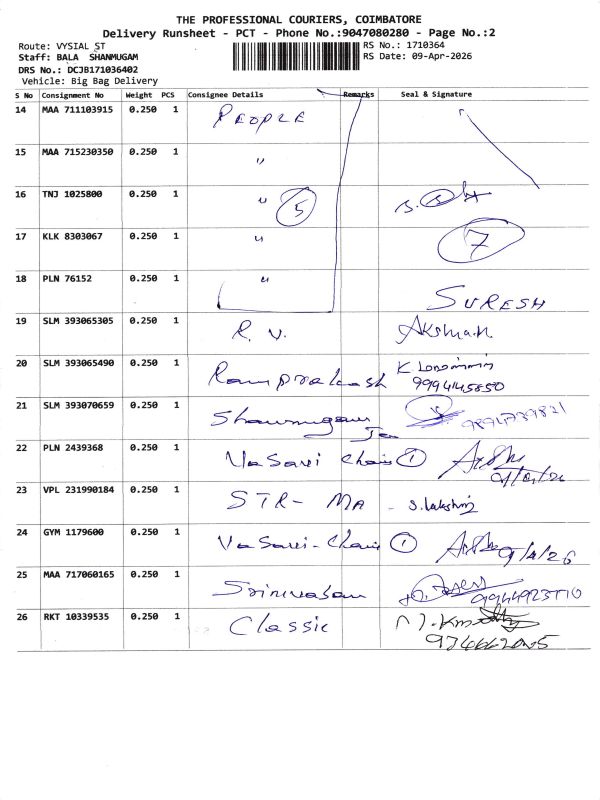 THE PROFESSIONAL COURIERS, COIMBATORE
Delivery Runsheet - PCT - Phone No.:9047080280 - Page No.:2
Route: VYSIAL ST
RS No.: 1710364
Staff: BALA SHANMUGAM
RS Date: 09-Apr-2026
DRS No.: DCJB171036402
Vehicle: Big Bag Delivery
S No Consignment No Weight PCS Consignee Details Remarks Seal & Signature
14 MAA 711103915 0.250 1 PEOPLE
15 MAA 715230350 0.250 1 "
16 TNJ 1025800 0.250 1 " 5
17 KLK 8303067 0.250 1 " 7
18 PLN 76152 0.250 1 " SURESH
19 SLM 393065305 0.250 1 R. V.
20 SLM 393065490 0.250 1 Ramprakash K
21 SLM 393070659 0.250 1 Shanmugam
22 PLN 2439368 0.250 1 VaSavi Chais 1
23 VPL 231990184 0.250 1 STR- MA - S. lakshmi
24 GYM 1179600 0.250 1 VaSavi- Chais 1 9/4/26
25 MAA 717060165 0.250 1 Srinivasan
26 RKT 10339535 0.250 1 Classic